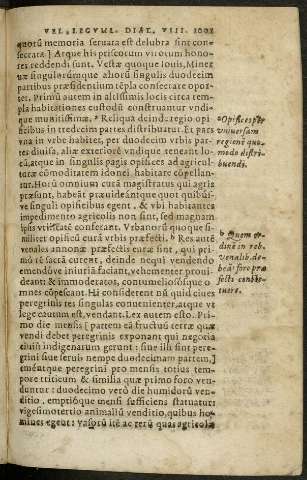 VEL, LEGVML. DIAL. VIII. 1001
quorũ memoria seruata est delubra sint con-
secrata] Atque his priscorum virorum hono-
res reddendi sunt. Vestæ quoque Iouis, Miner
uæ singularúmque aliorũ singulis duodecim
partibus præsidentium tẽpla consecrare opor-
tet. Primũ autem in altissimis locis circa tem-
pla habitationes custodũ construantur vndi-
que munitissimæ. ª Reliqua deinde regio opi
ficibus in tredecim partes distribuatur. Et pars
vna in vrbe habitet, per duodecim vrbis par-
tes diuisa, aliæ exteriores vndique teneant lo-
ca, atque in singulis pagis opifices ad agricul-
turæ cõmoditatem idonei habitare cõpellan-
tur. Horũ omnium curã magistratus qui agris
præsunt, habeãt præuideãntque quot quibús-
ve singuli opificibus egent, & vbi habitantes
impedimento agricolis non sint, sed magnam
ipsis vtilitatẽ conferant. Vrbanorũ quoque si-
militer opificũ curã vrbis præfecti. b Res autẽ
venales annonæ præfectis curæ sint, qui pri-
mũ rẽ sacrã curent, deinde nequi vendendo
emendóve iniuriã faciant, vehementer proui
deant: & immoderatos, contumeliosósque o-
mnes cõpescant. Hi considerent nũ quid ciues
peregrinis res singulas conuenienter, atque vt
lege cautum est, vendant. Lex autem esto. Pri-
mo die mensis [partem eã fructuũ terræ quæ
vendi debet peregrinis exponant qui negotia
eiusũ indigenarum gerunt: siue illi sint pere-
grini siue serui: nempe duodecimam partem,]
emẽntque peregrini pro mensis totius tem-
pore triticum & similia quæ primo foro ven-
duntur: duodecimo verò die humidorũ ven-
ditio, emptióque mensi sufficiens statuatur:
vigesimotertio animaliũ venditio, quibus ho-
mines egent: vasorũ itẽ ac rerũ quas agricolæ
a Opifices per
vniuersam
regionẽ quo-
modo distri-
buendi.
b Quem or-
dinẽ in reb.
venalib. de-
beãt foro præ
fecti consti-
tuere.